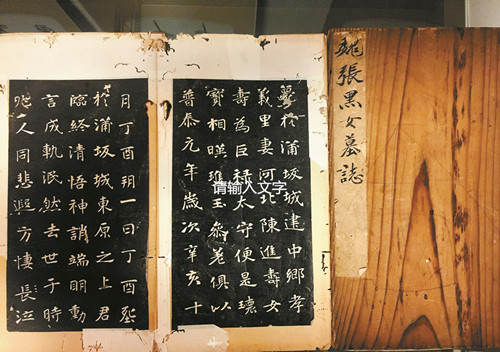 魏張黑女墓誌
薨於蒲坂城建中鄉孝
義里妻河北陳進壽女
壽為巨祿太守便是瓌
寶相暎瓊玉參差俱以
普泰元年歲次辛亥十
月丁酉朔一日丁酉塟
於蒲坂城東原之上君
臨終清悟神誚端明動
言成軌泯然去世于時
兆人同悲遐方悽長泣
请输入文字